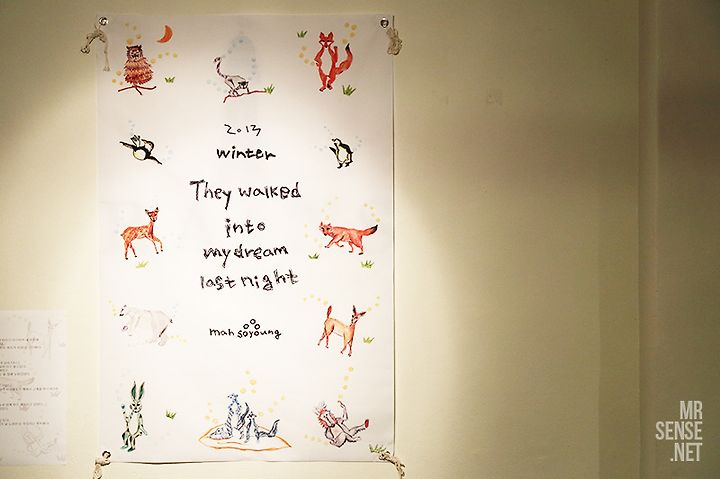 2013
winter
They walked
into
my dream
last night
mah soyoung
MR
SENSE
.NET